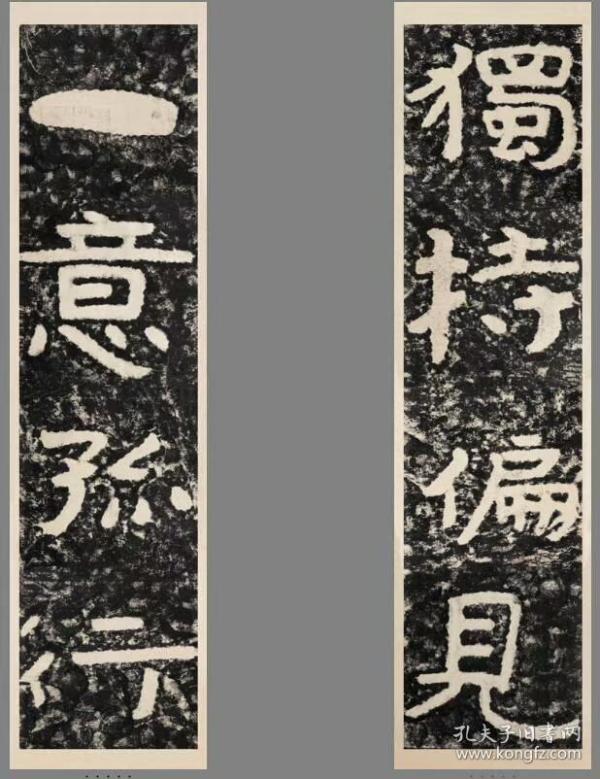 獨持偏見
一意孫行
孔夫子旧书网
www.kongfz.com